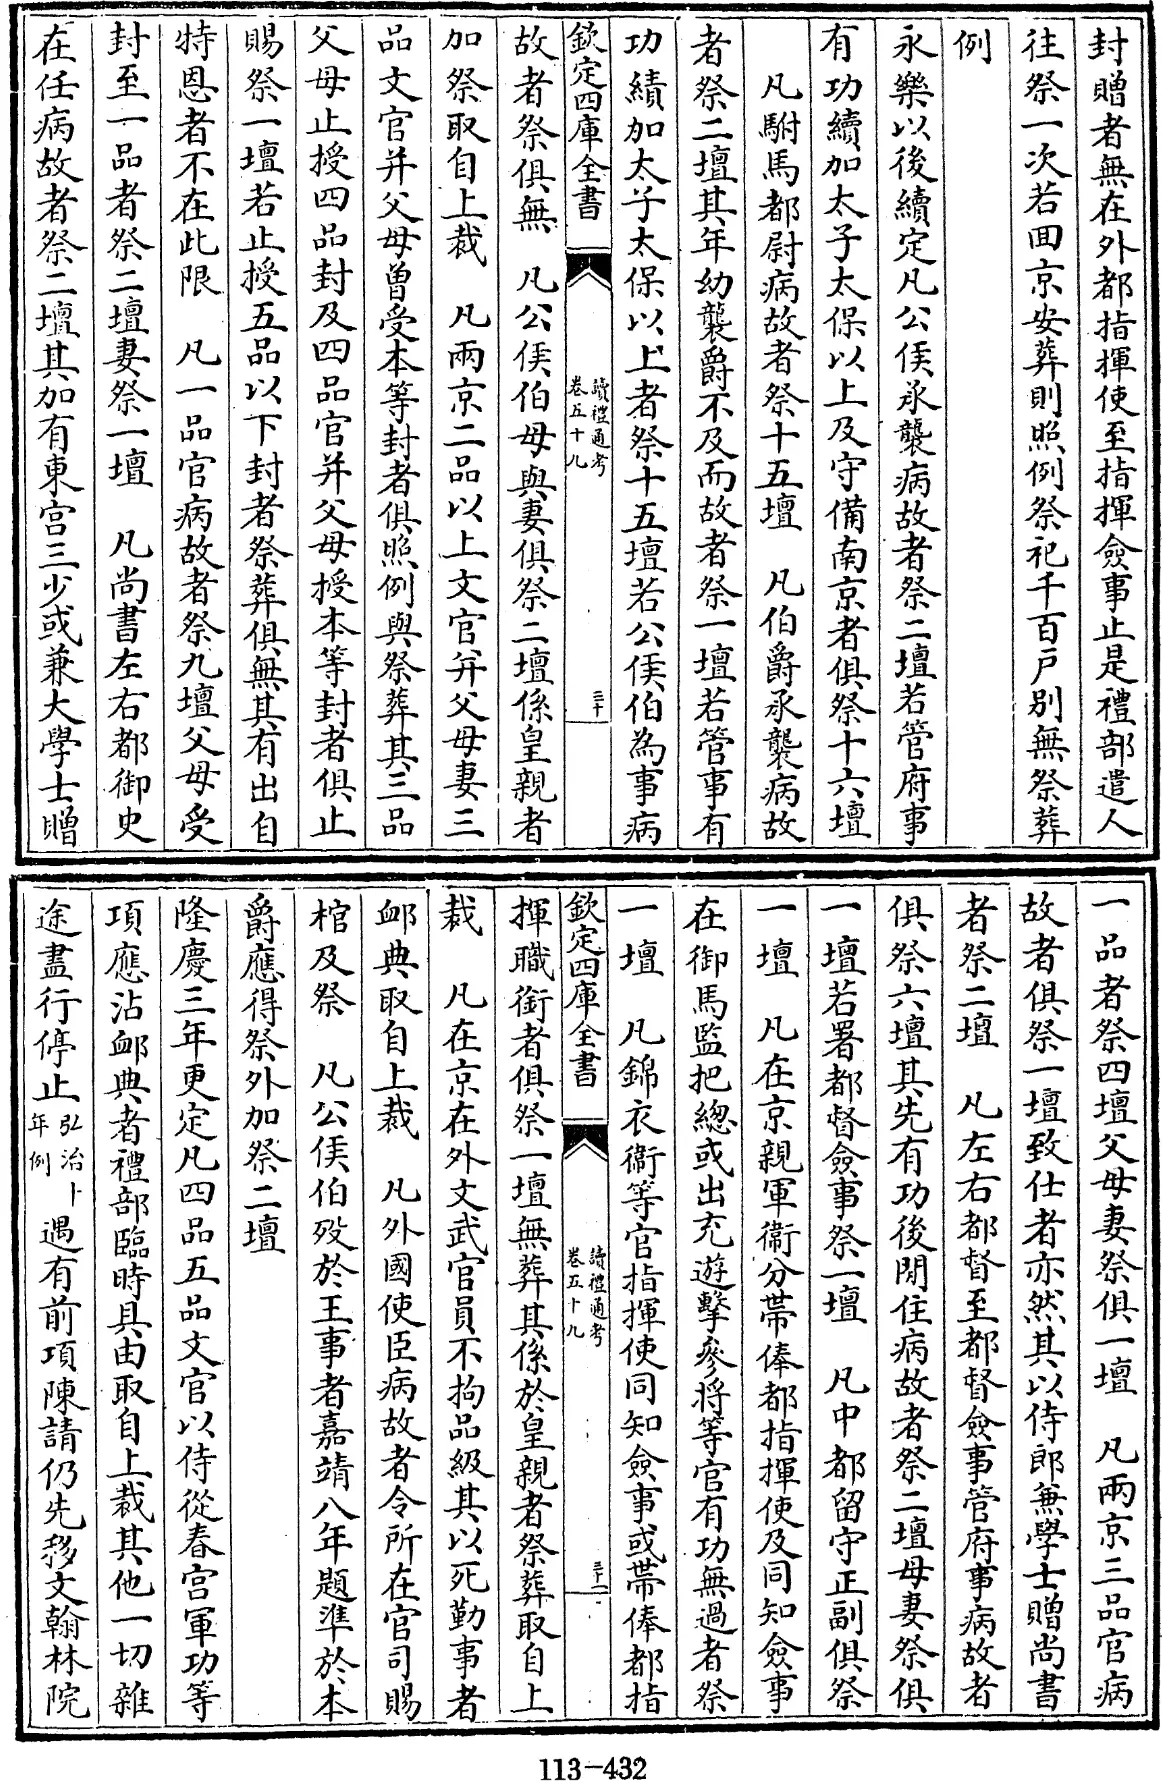 封贈者無在外都指揮使至指揮僉事止是禮部遣人
往祭一次若回京安葬則照例祭祀千百戸別無祭葬
例
永樂以後續定凡公侯承襲病故者祭二壇若管府事
有功續加太子太保以上及守備南京者俱祭十六壇
凡駙馬都尉病故者祭十五壇　凡伯爵承襲病故
者祭二壇其年幼襲爵不及而故者祭一壇若管事有
功績加太子太保以上者祭十五壇若公侯伯為事病
欽定四庫全書
讀禮通考
卷五十九
三十
故者祭俱無　凡公侯伯母與妻俱祭二壇係皇親者
加祭取自上裁　凡兩京二品以上文官并父母妻三
品文官并父母曾受本等封者俱照例與祭葬其三品
父母止授四品封及四品官并父母授本等封者俱止
賜祭一壇若止授五品以下封者祭葬俱無其有出自
特恩者不在此限　凡一品官病故者祭九壇父母受
封至一品者祭二壇妻祭一壇　凡尚書左右都御史
在任病故者祭二壇其加有東宮三少或兼大學士贈
一品者祭四壇父母妻祭俱一壇　凡兩京三品官病
故者俱祭一壇致仕者亦然其以侍郎兼學士贈尚書
者祭二壇　凡左右都督至都督僉事管府事病故者
俱祭六壇其先有功後閒住病故者祭二壇母妻祭俱
一壇若署都督僉事祭一壇　凡中都留守正副俱祭
一壇　凡在京親軍衛分帶俸都指揮使及同知僉事
在御馬監把總或出充遊擊參將等官有功無過者祭
一壇　凡錦衣衛等官指揮使同知僉事或帶俸都指
欽定四庫全書
讀禮通考
卷五十九
三十一
揮職銜者俱祭一壇無葬其係於皇親者祭葬取自上
裁　凡在京在外文武官員不拘品級其以死勤事者
卹典取自上裁　凡外國使臣病故者令所在官司賜
棺及祭　凡公侯伯歿於王事者嘉靖八年題準於本
爵應得祭外加祭二壇
隆慶三年更定凡四品五品文官以侍從春宮軍功等
項應沾卹典者禮部臨時具由取自上裁其他一切雜
途盡行停止弘治十年例遇有前項陳請仍先移文翰林院
113-432